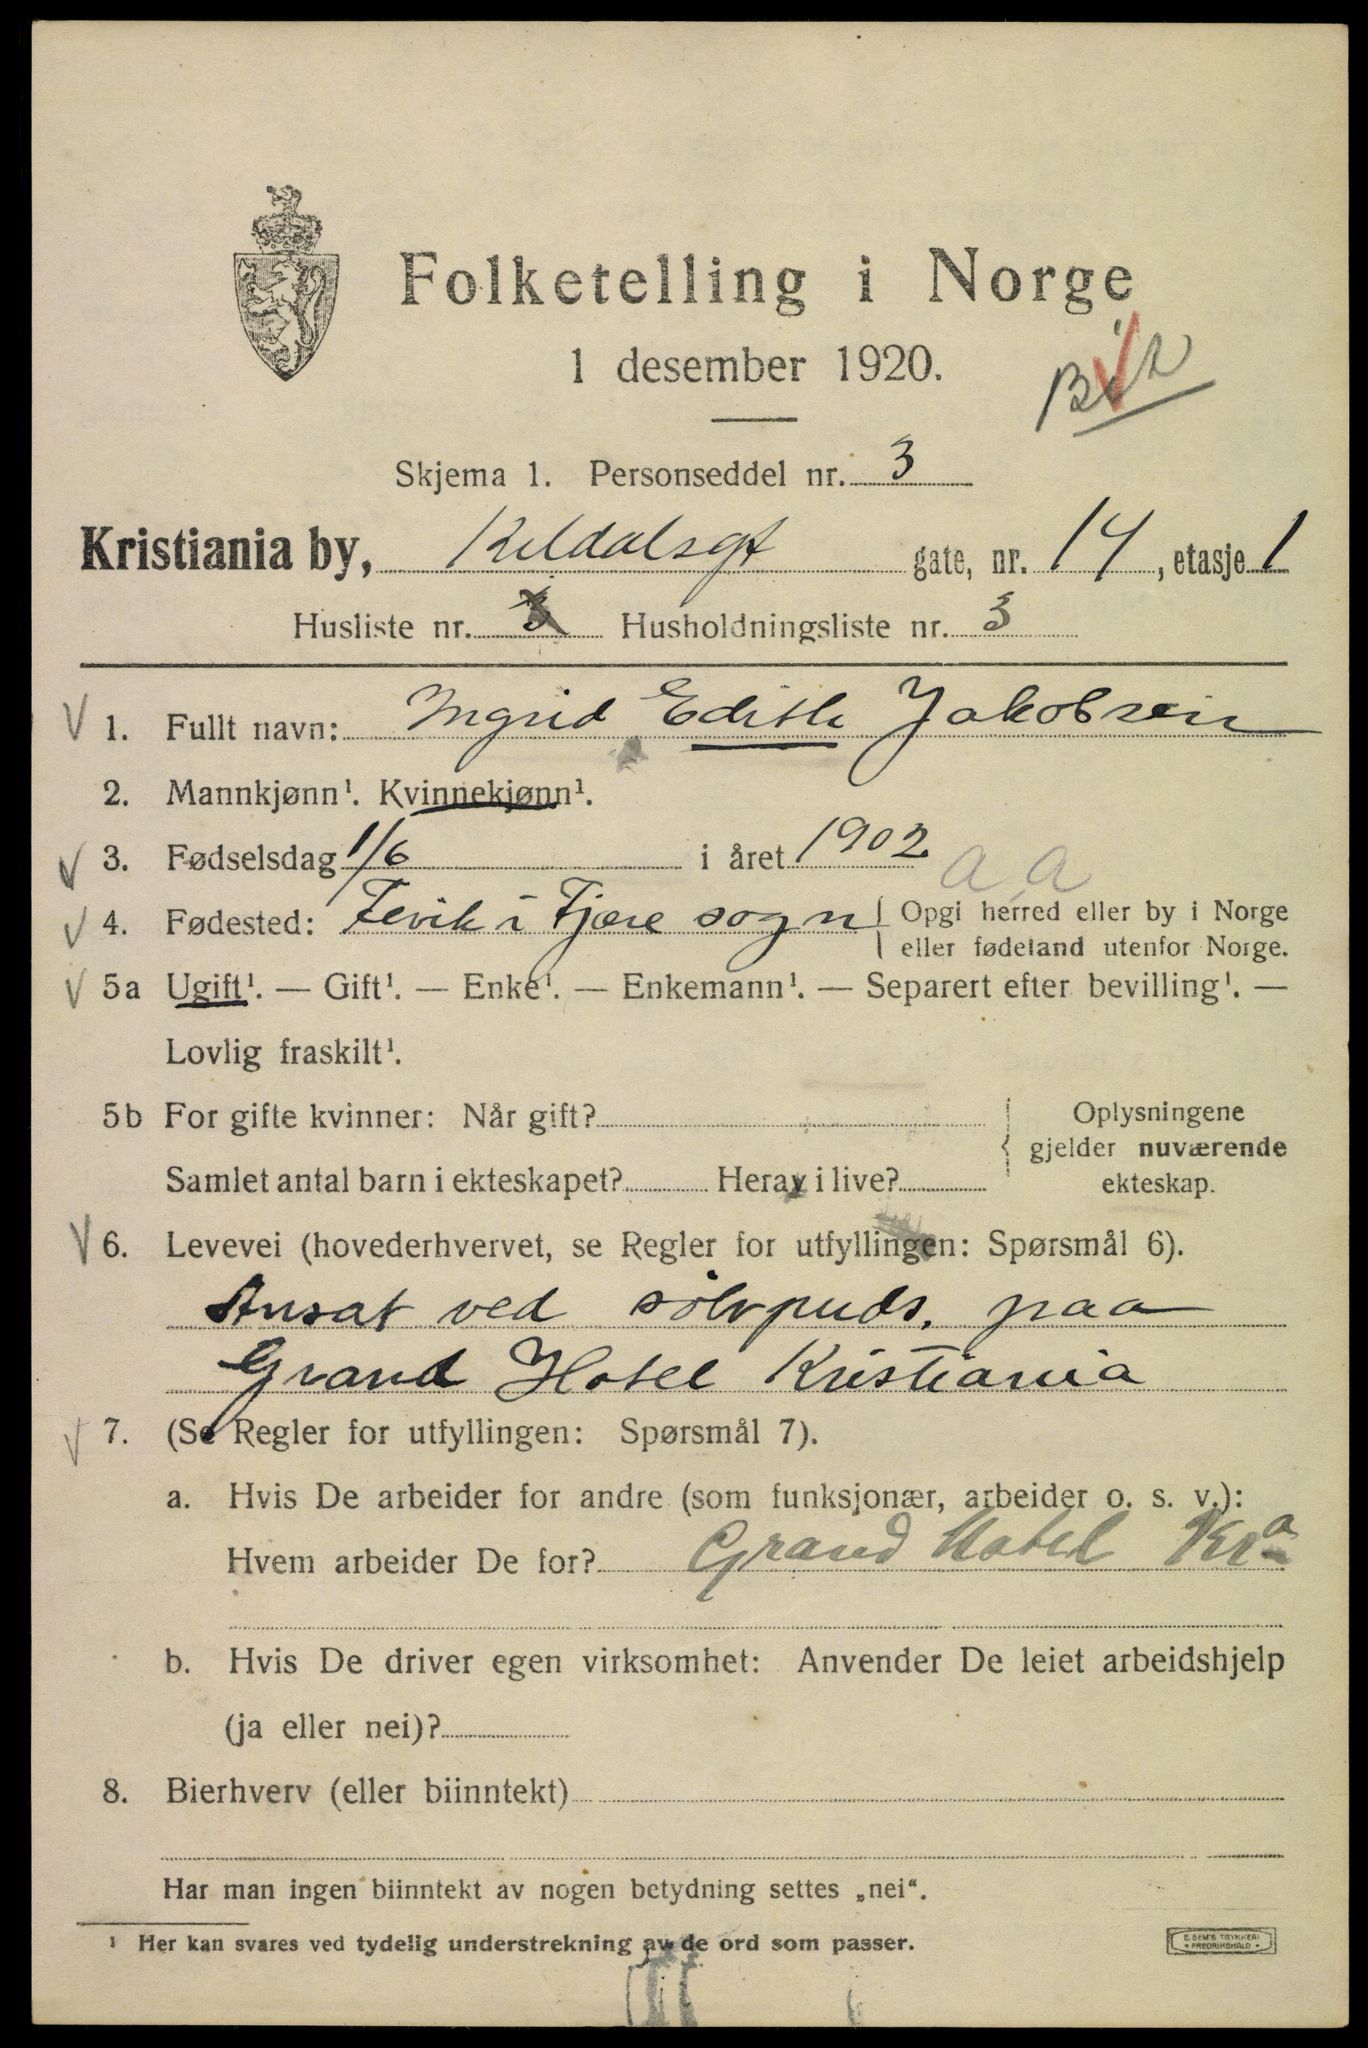 Folketelling i Norge
1 desember 1920.
Skjema 1. Personseddel nr. 3
Kristiania by, Keldalsgt gate, nr. 14, etasje 1
Husliste nr. 3 Husholdningsliste nr. 3
1. Fullt navn: Ingrid Edith Jakobsen
2. Mannkjønn¹. Kvinnekjønn¹.
3. Fødselsdag 1/6 i året 1902
a a
4. Fødested: Fevik i Fjære sogn { Opgi herred eller by i Norge
eller fødeland utenfor Norge.
5a Ugift¹. — Gift¹. — Enke¹. — Enkemann¹. — Separert efter bevilling¹. —
Lovlig fraskilt¹.
5b For gifte kvinner: Når gift? { Oplysningene
gjelder nuværende
ekteskap.
Samlet antal barn i ekteskapet? Herav i live?
6. Levevei (hovederhvervet, se Regler for utfyllingen: Spørsmål 6).
Ansat ved sølvpuds, paa
Grand Hotel Kristiania
7. (Se Regler for utfyllingen: Spørsmål 7).
a. Hvis De arbeider for andre (som funksjonær, arbeider o. s. v.):
Hvem arbeider De for? Grand Hotel Kra
b. Hvis De driver egen virksomhet: Anvender De leiet arbeidshjelp
(ja eller nei)?
8. Bierhverv (eller biinntekt)
Har man ingen biinntekt av nogen betydning settes „nei“.
¹ Her kan svares ved tydelig understrekning av de ord som passer.
E. SEM'S TRYKKERI
• FREDRIKSHALD •